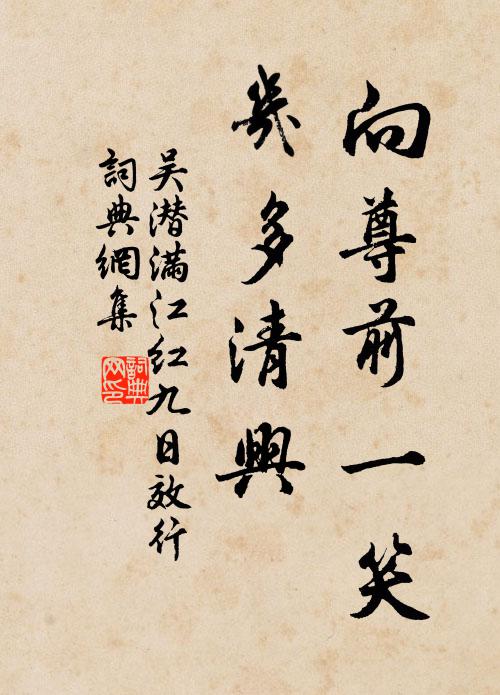 向尊前一笑
幾多清興
吴潜满江红九日效行
詞典網集
詞典
网印